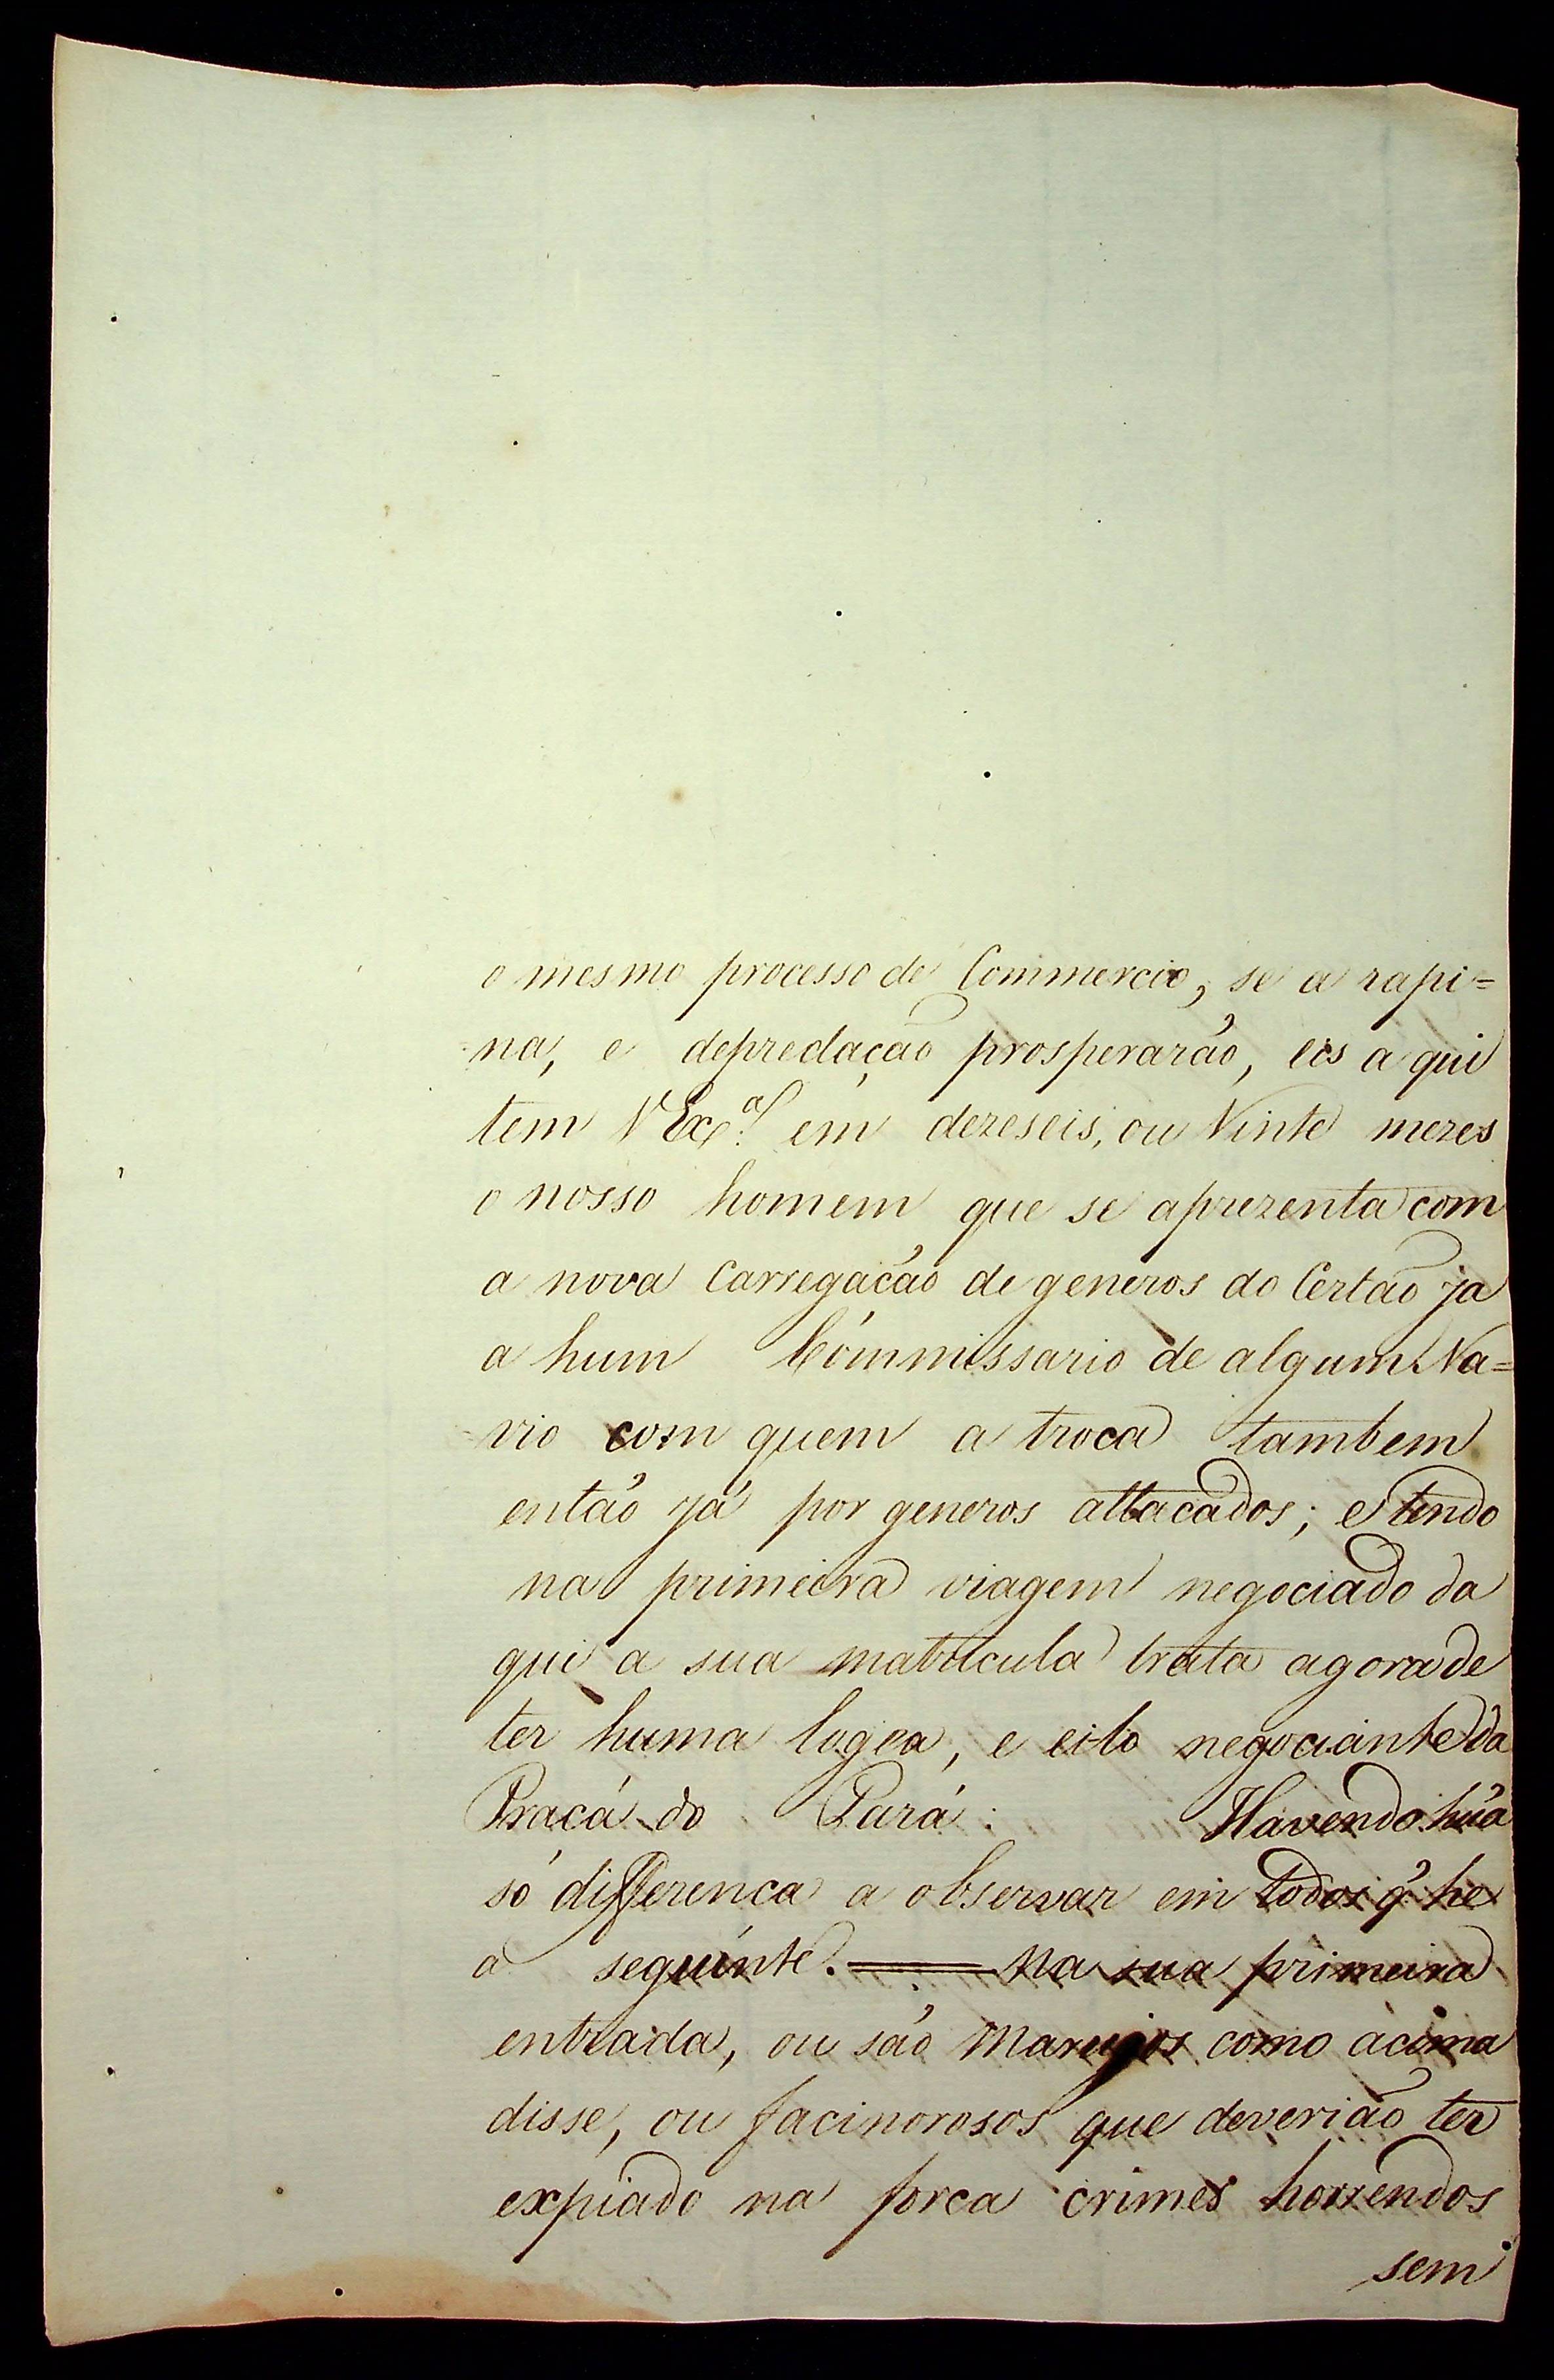 o mesmo processo de Commercio, se a rapi=
=na, e depredação prosperarão, eis a qui
tem V Exª em dezeseis, ou Vinte mezes
o nosso homem que se aprezenta com
a nova Carregacão de generos do Certão ja
a hum Commissario de algum Na=
=vio com quem a troca tambem
então já por generos attacados; e tendo
na primeira viagem negociado da
qui a sua matricula trata agora de
ter huma logea, e eilo negociante da
Pracá do Pará: Havendo húa
só differenca a observar em todos q̃ he
a seguinte. == Na sua primeira
entrada, ou são Marujos como acima
disse, ou facinorosos que deverião ter
expiado na forca crimes horrendos
sem